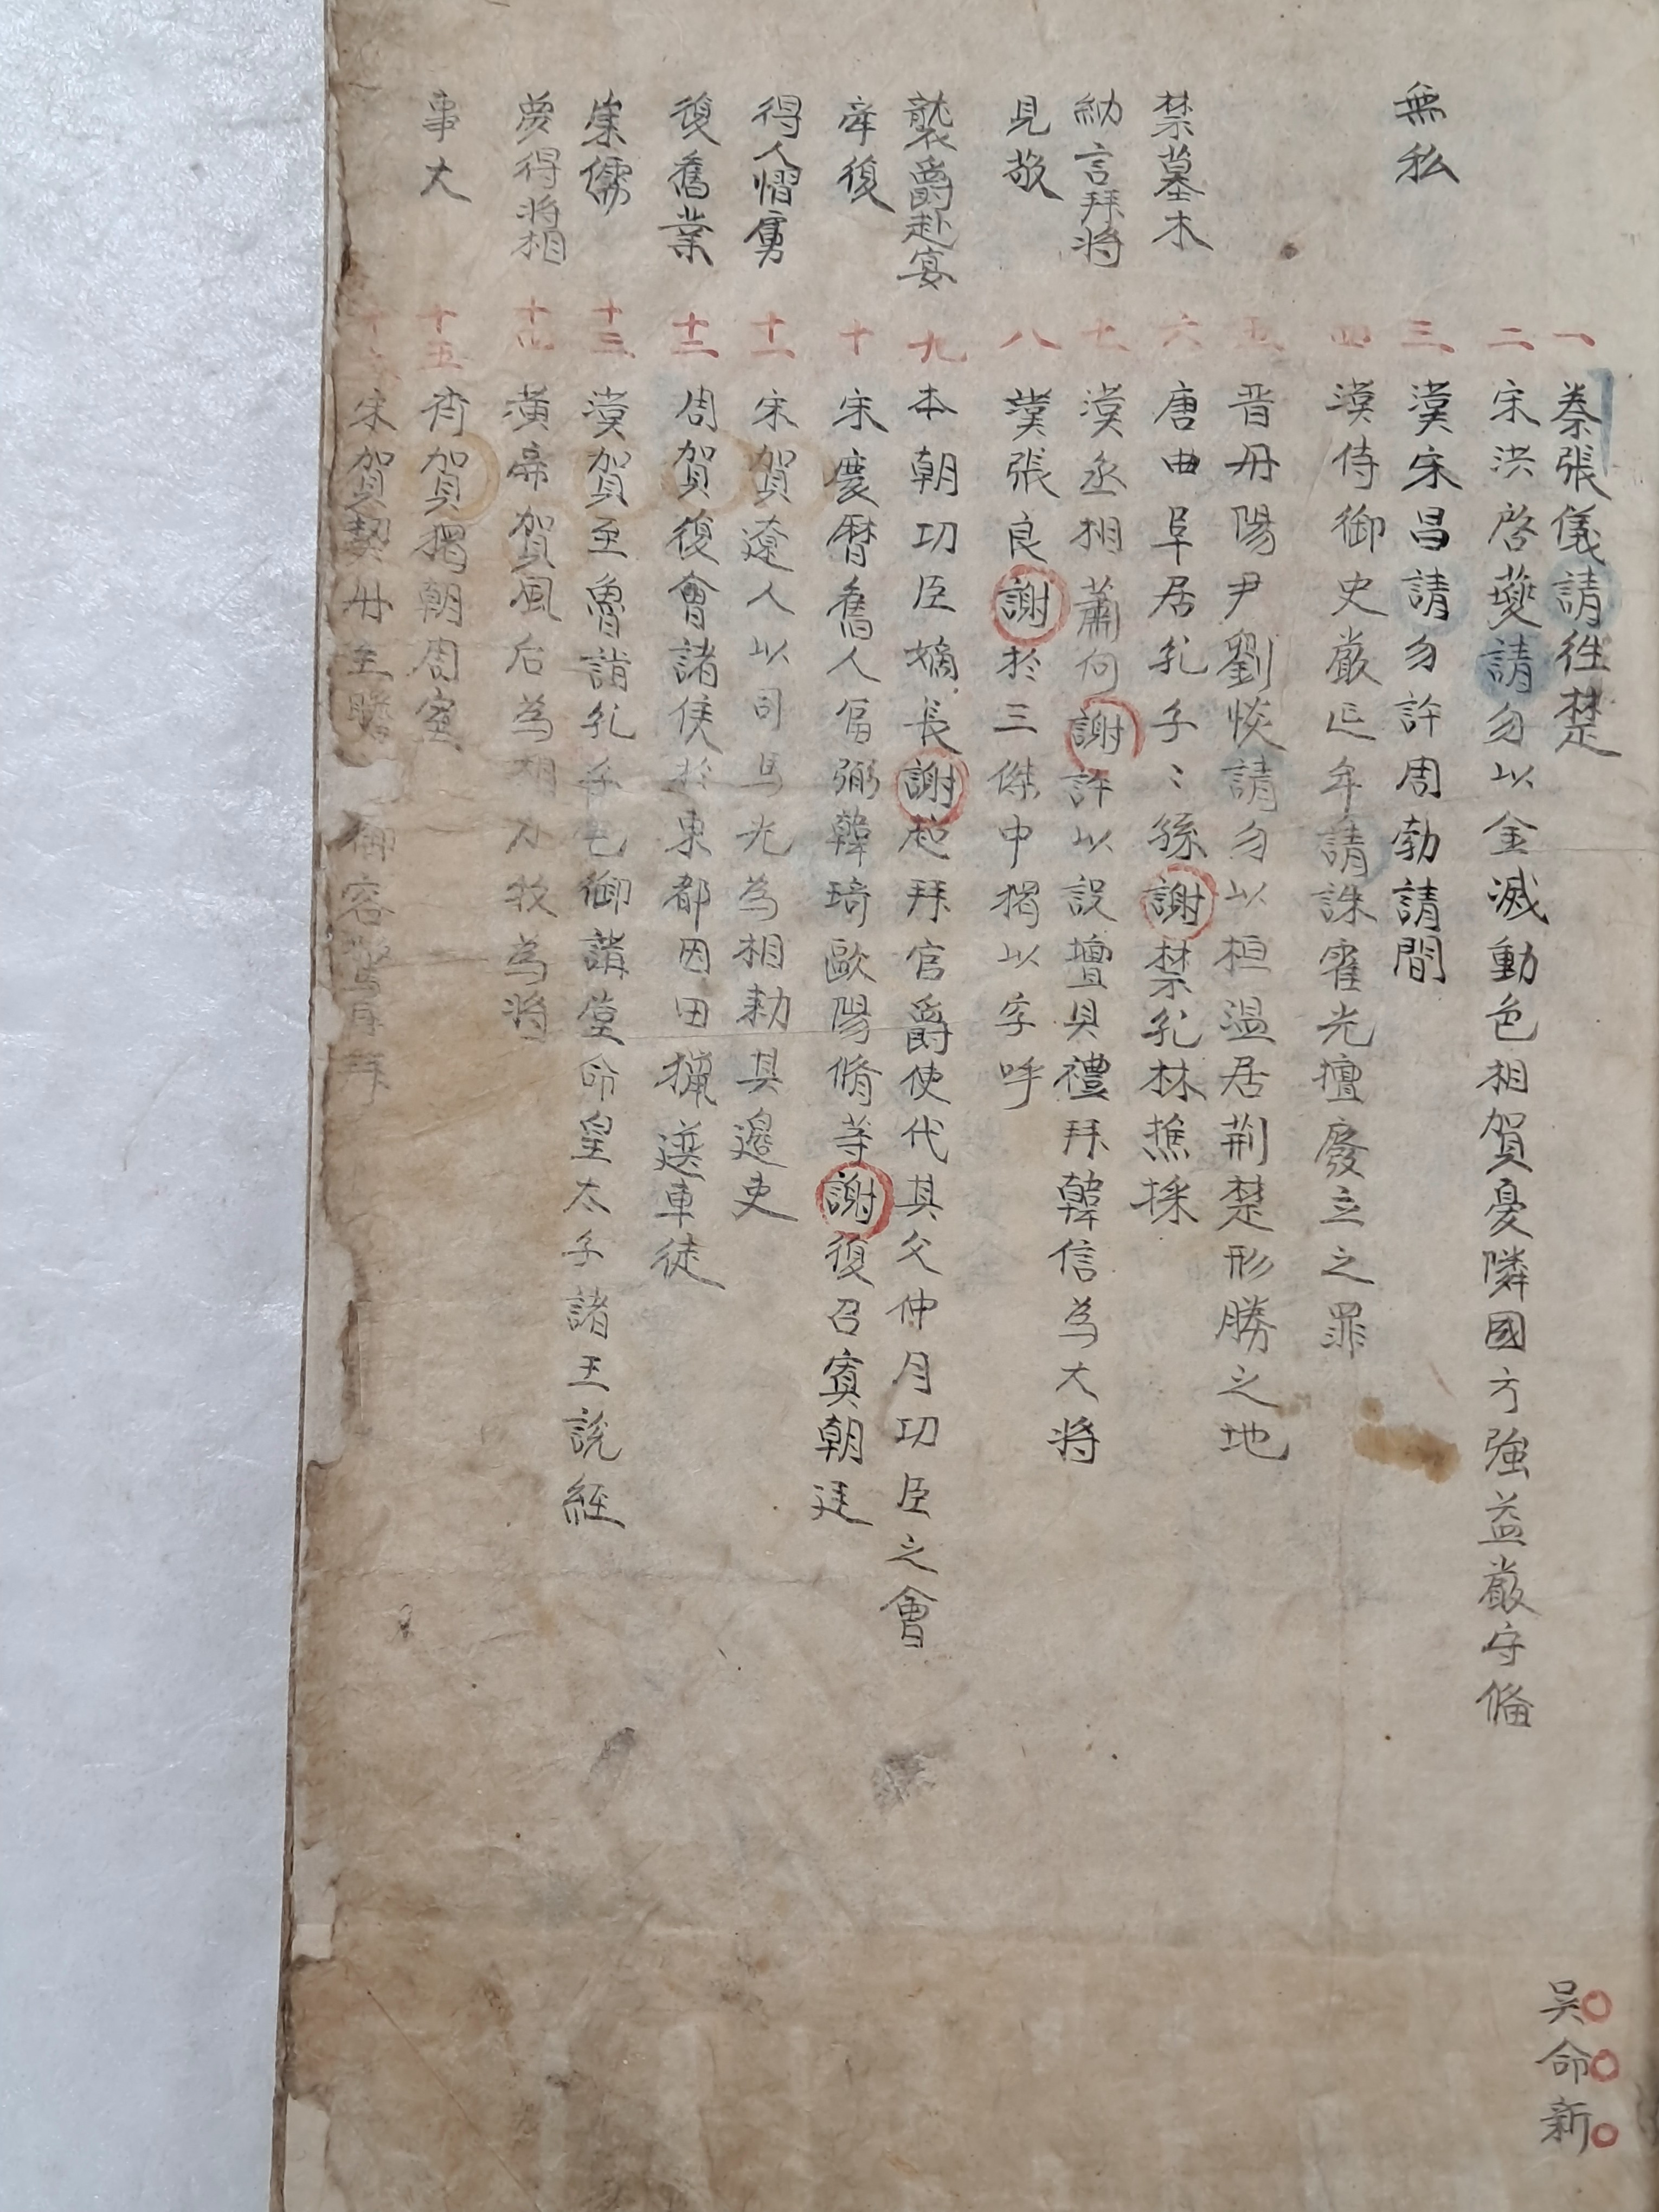 一 秦張儀請往楚
二 宋洪啓夔請勿以金滅動色相賀憂隣國方強益嚴守備
無私 三 漢宋昌請勿許周勃請間
四 漢侍御史嚴延年請誅霍光擅廢立之罪
五 晋丹陽尹劉惔請勿以桓温居荊楚形勝之地
禁墓木 六 唐曲阜居孔子〻孫謝禁孔林樵採
納言拜將 七 漢丞相蕭何謝許以設壇具禮拜韓信為大將
見敬 八 漢張良謝於三傑中獨以字呼
襲爵赴宴 九 本朝功臣嫡長謝超拜官爵使代其父仲月功臣之會
牽復 十 宋慶曆舊人富弼韓琦歐陽脩等謝復召賓朝廷
得人慴虜 十一 宋賀遼人以司馬光為相勅其邊吏
復舊業 十二 周賀復會諸侯於東都因田獵選車徒
崇儒 十三 漢賀至魯詣孔子宅御講堂命皇太子諸王說經
夢得將相 十四 黃帝賀風后為相力牧為將
事大 十五 齊賀獨朝周室
宋賀契丹主 御容驚再拜
吳命新